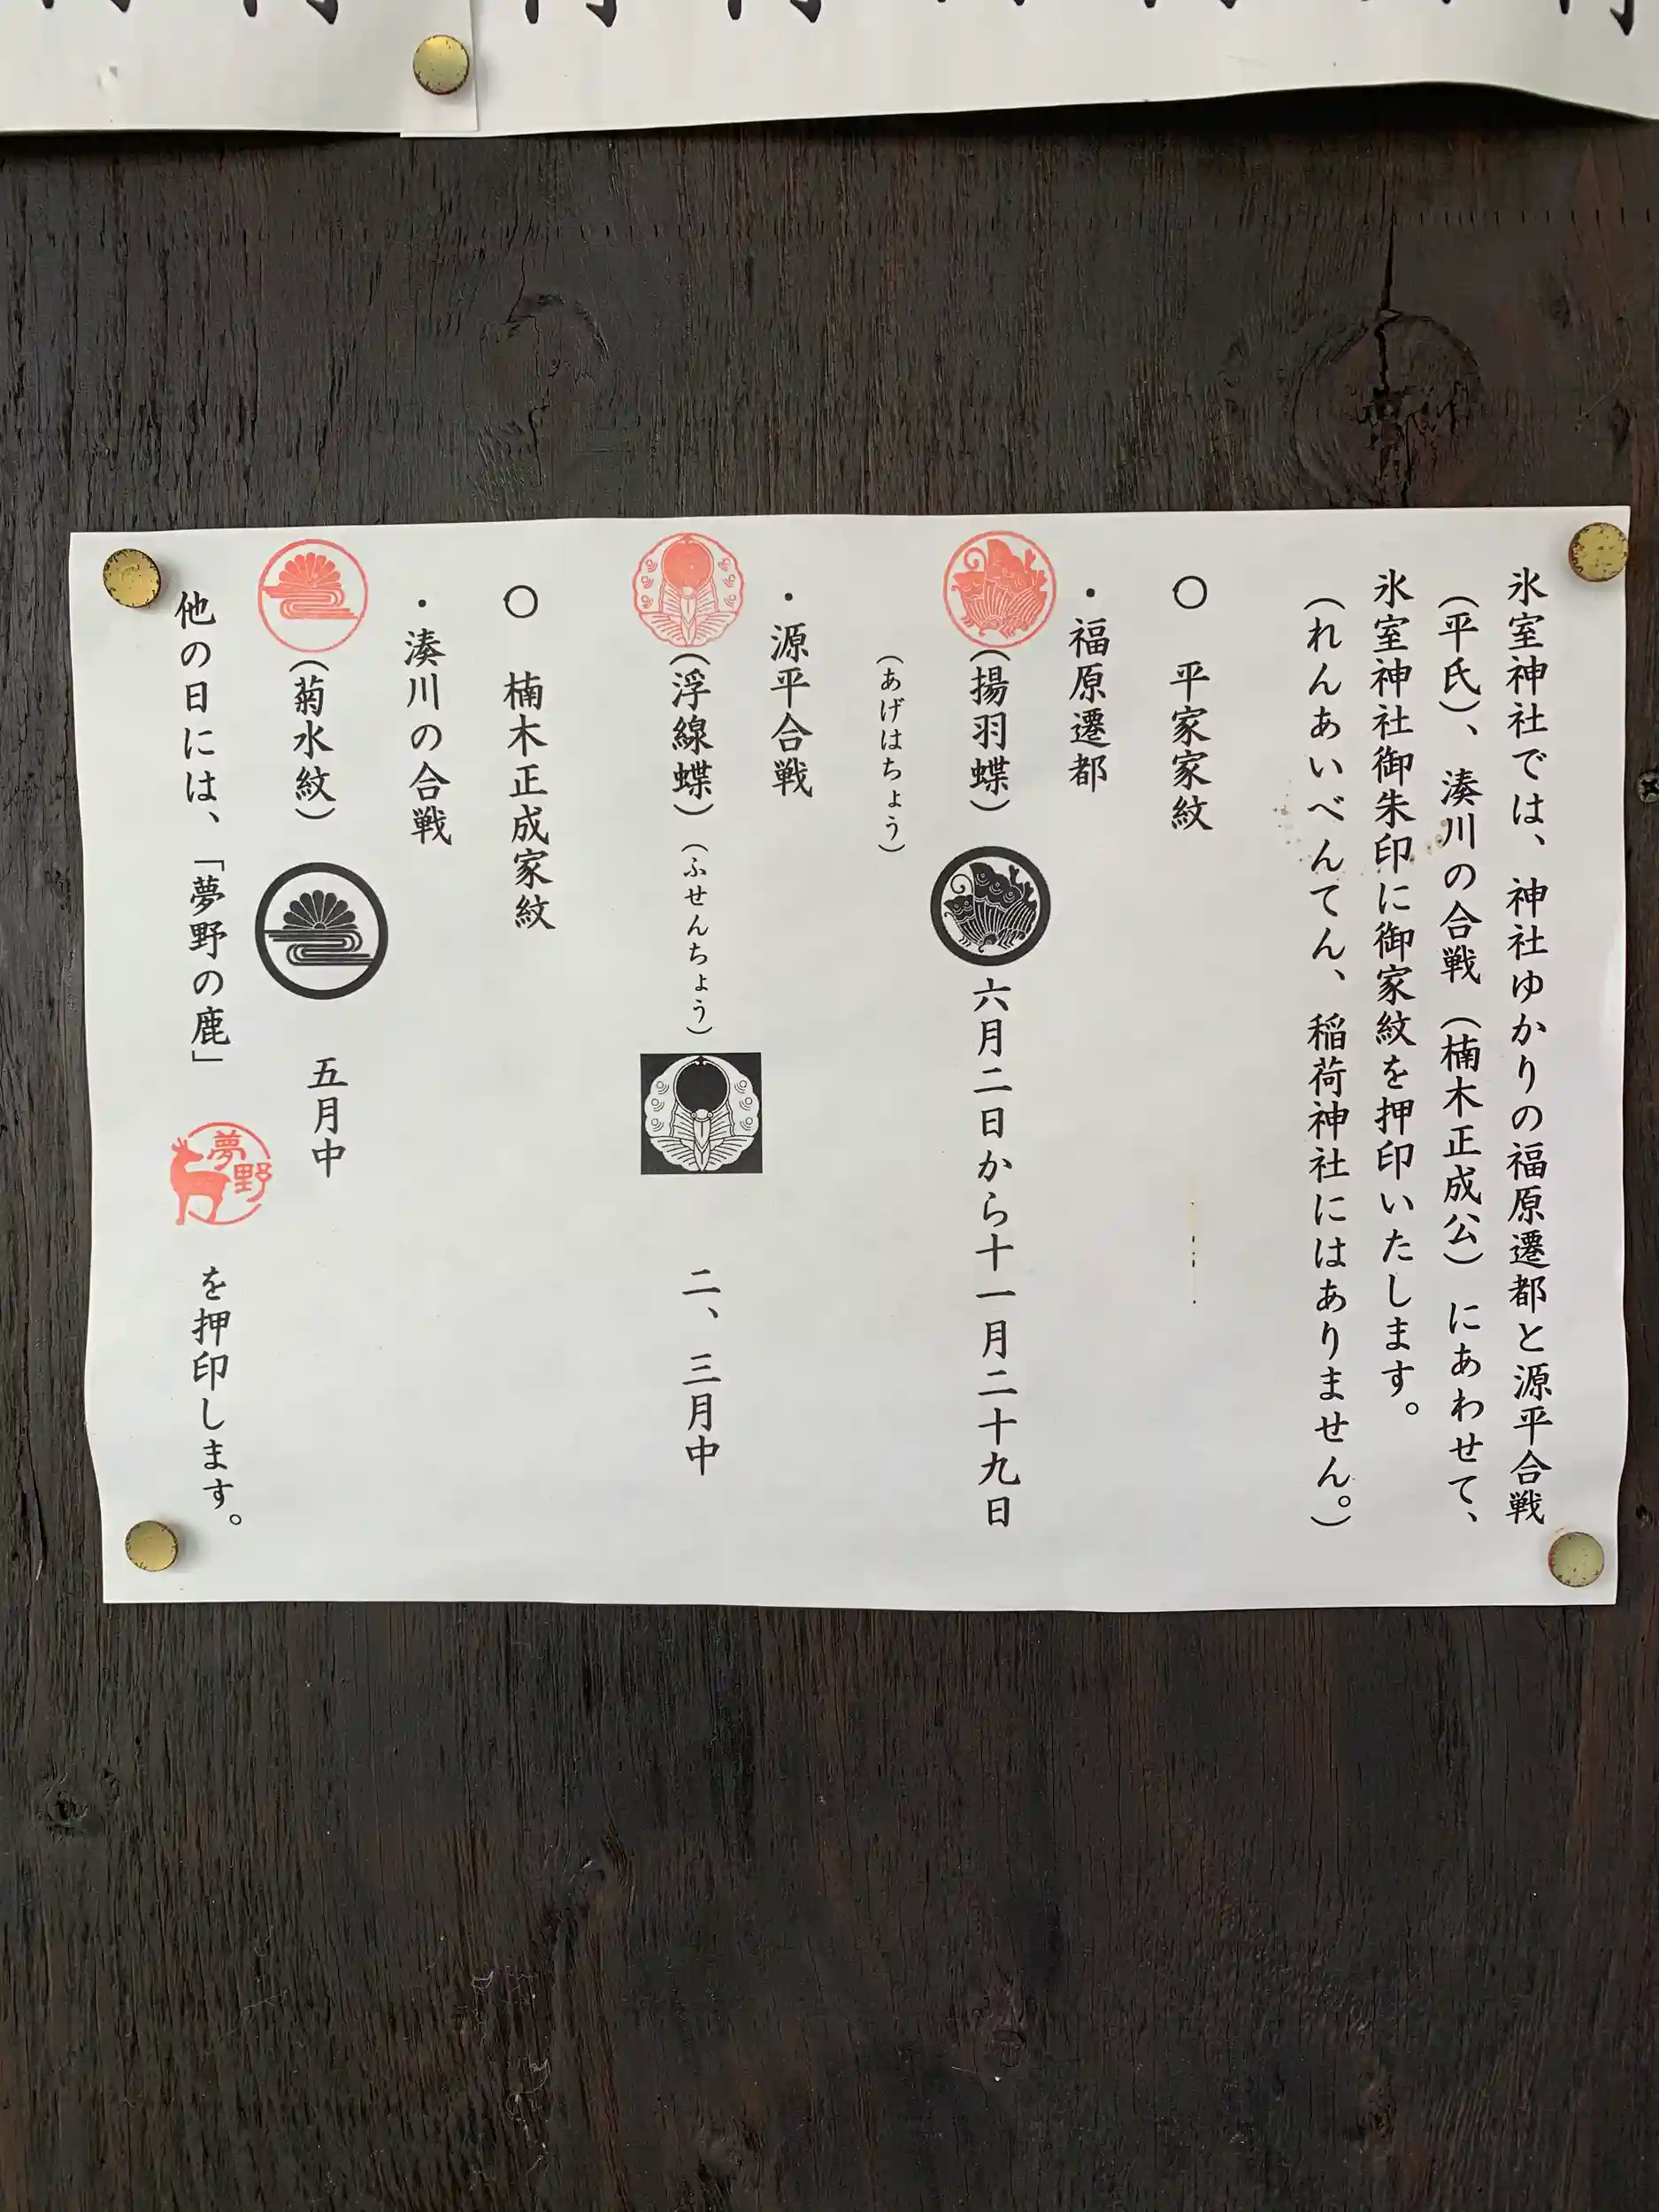 氷室神社では、神社ゆかりの福原遷都と源平合戦
（平氏）、湊川の合戦（楠木正成公）にあわせて、
氷室神社御朱印に御家紋を押印いたします。
（れんあいべんてん、稲荷神社にはありません。）
〇　平家家紋
・福原遷都
（揚羽蝶）　六月二日から十一月二十九日
（あげはちょう）
・源平合戦
（浮線蝶）（ふせんちょう）　二、三月中
〇　楠木正成家紋
・湊川の合戦
（菊水紋）　五月中
他の日には、「夢野の鹿」　夢野　を押印します。